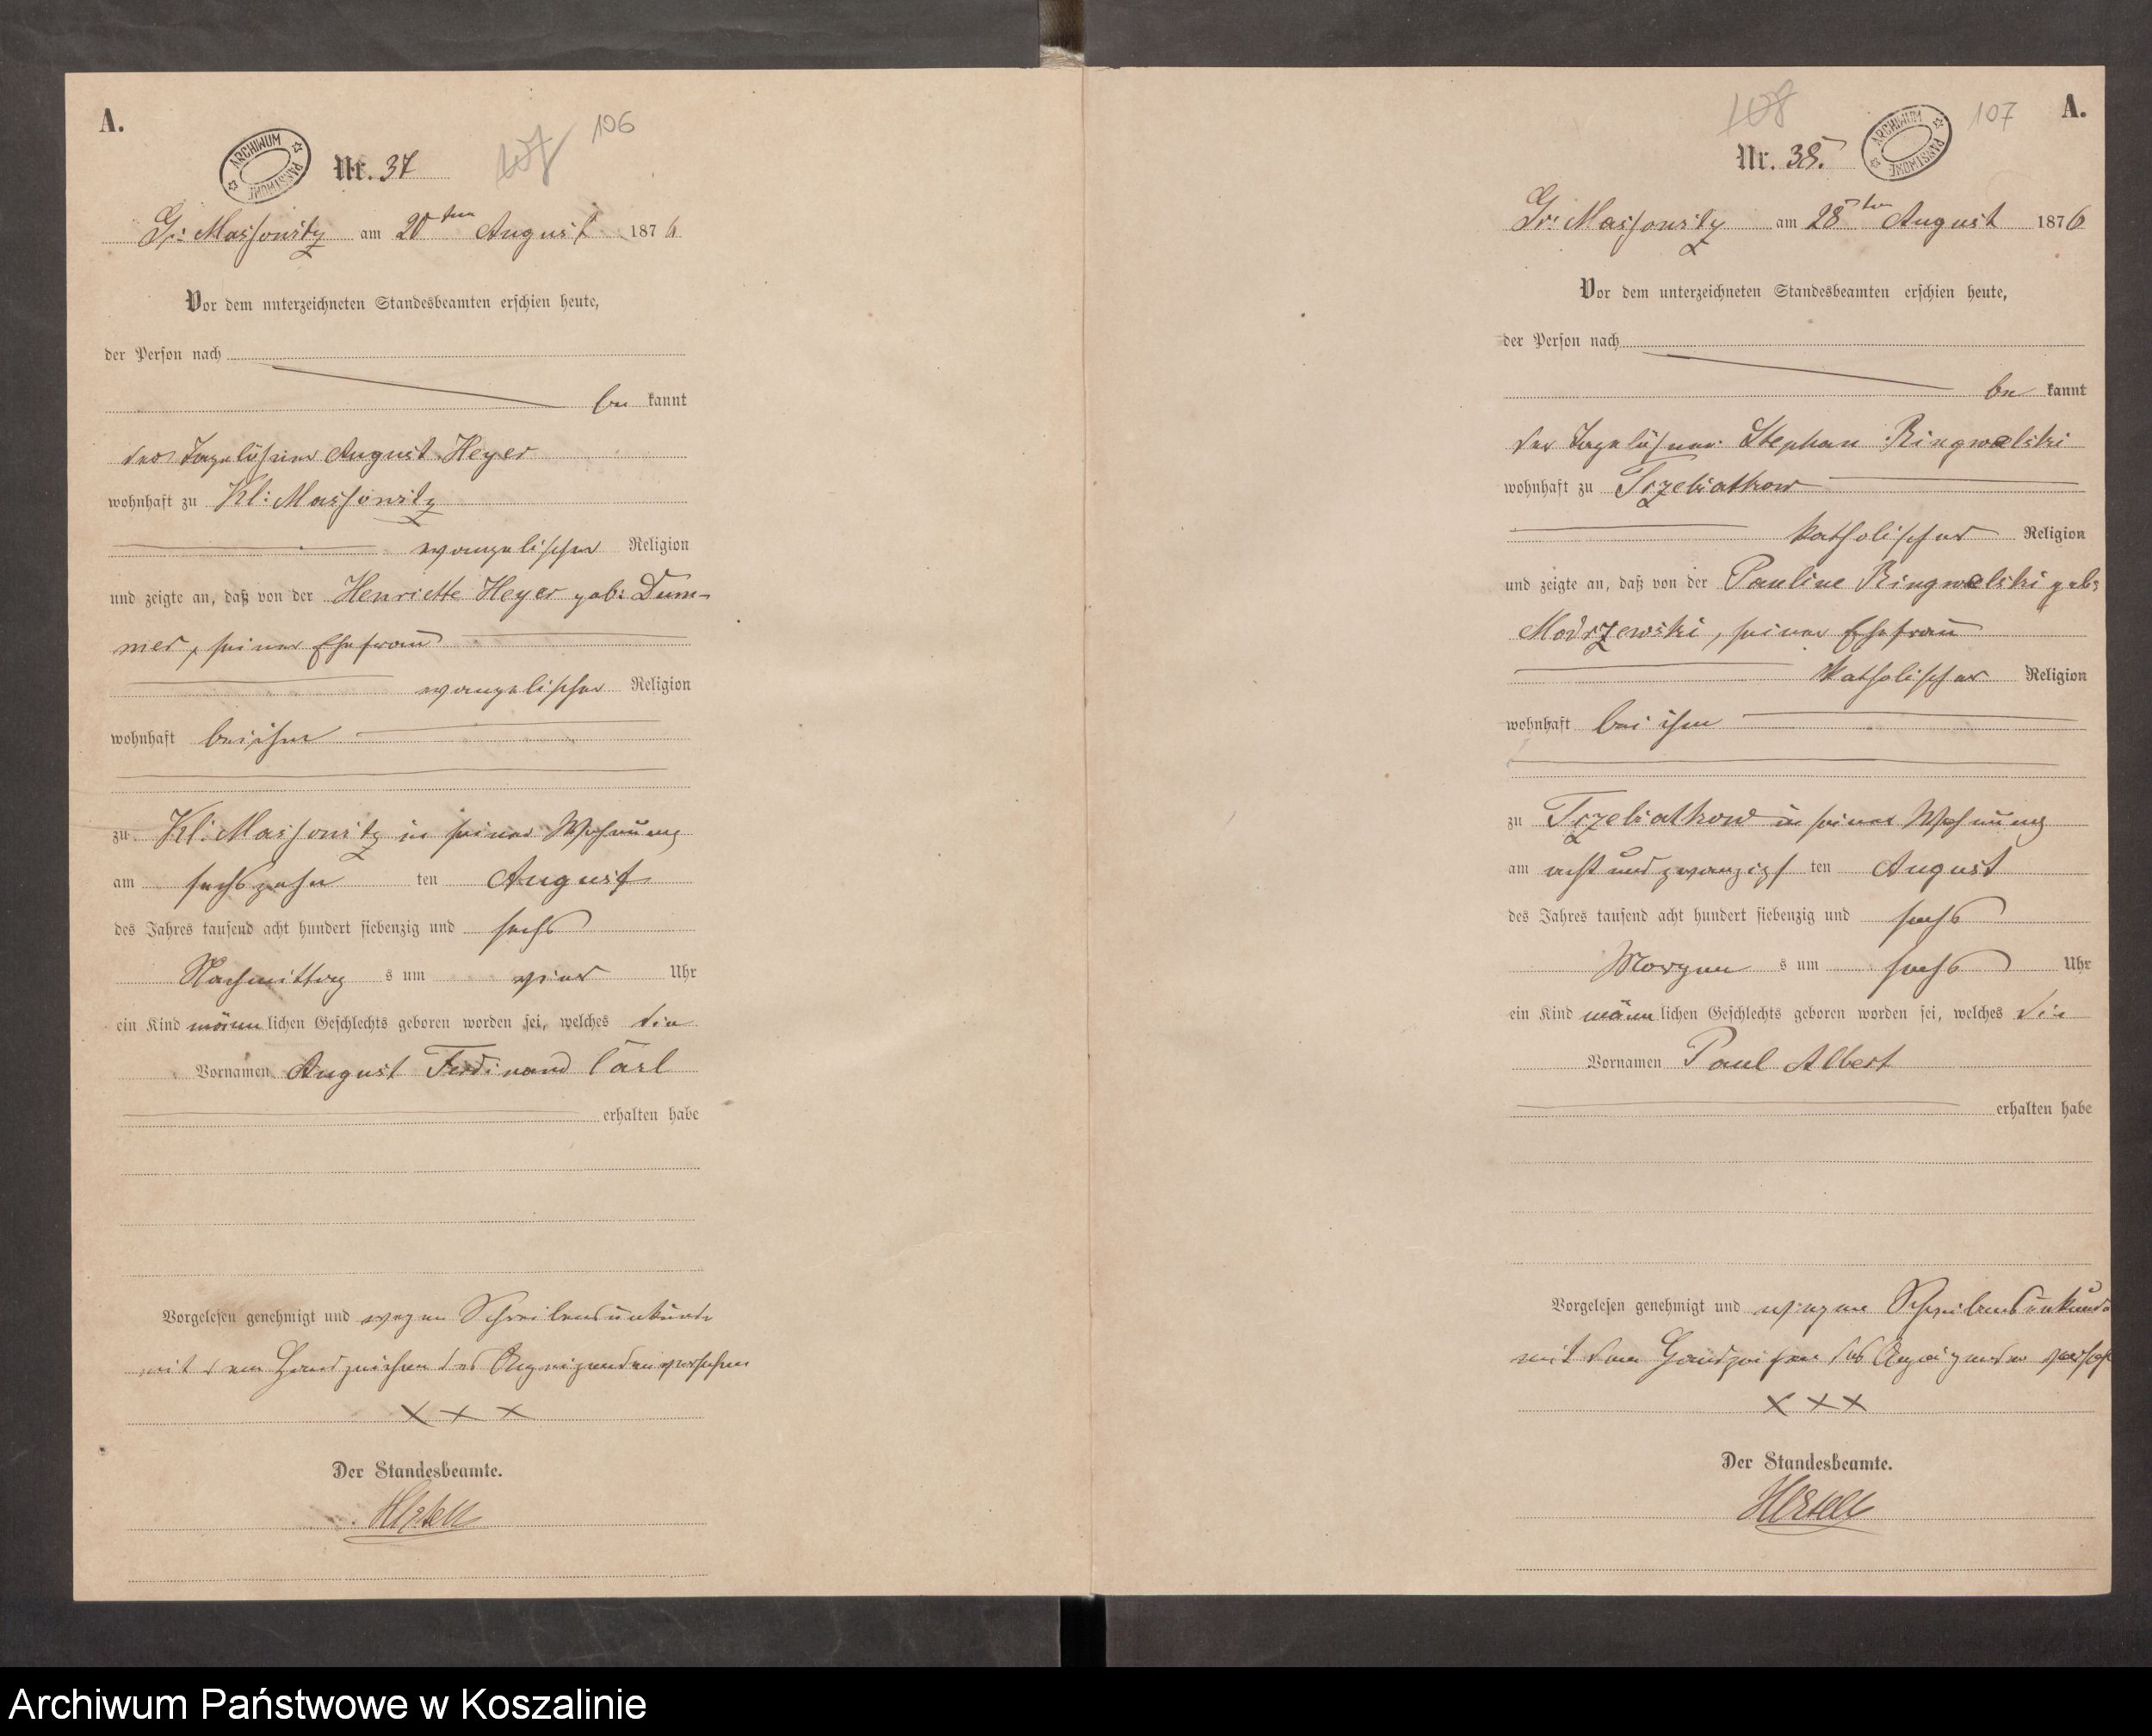 A.
ARCHIWUM PAŃSTWOWE
Nr. 37
107
106
Gr: Massowitz am 20ten August 1876
Vor dem unterzeichneten Standesbeamten erschien heute,
der Person nach
be kannt
der Tagelöhner August Heyer
wohnhaft zu Kl: Massowitz
evangelischer Religion
und zeigte an, daß von der Henriette Heyer geb: Dum-
mer, seiner Ehefrau
evangelischer Religion
wohnhaft bei ihm
zu Kl: Massowitz in seiner Wohnung
am sechszehn ten August
des Jahres tausend acht hundert siebenzig und sechs
Nachmittag s um vier Uhr
ein Kind männlichen Geschlechts geboren worden sei, welches die
Vornamen August Ferdinand Carl
erhalten habe
Vorgelesen genehmigt und wegen Schreibensunkunde
mit dem Handzeichen des Anzeigenden versehen
X X X
Der Standesbeamte.
108
A.
107
ARCHIWUM PAŃSTWOWE
Nr. 38.
Gr: Massowitz am 28ten August 1876
Vor dem unterzeichneten Standesbeamten erschien heute,
der Person nach
be kannt
der Tagelöhner Stephan Ringwelski
wohnhaft zu Trzebiatkow
katholischer Religion
und zeigte an, daß von der Pauline Ringwelski geb:
Modrzewski, seiner Ehefrau
katholischer Religion
wohnhaft bei ihm
zu Trzebiatkow in seiner Wohnung
am acht und zwanzigs ten August
des Jahres tausend acht hundert siebenzig und sechs
Morgen s um sechs Uhr
ein Kind männlichen Geschlechts geboren worden sei, welches die
Vornamen Paul Albert
erhalten habe
Vorgelesen genehmigt und wegen Schreibensunkunde
mit dem Handzeichen des Anzeigenden verseh
X X X
Der Standesbeamte.
Archiwum Państwowe w Koszalinie